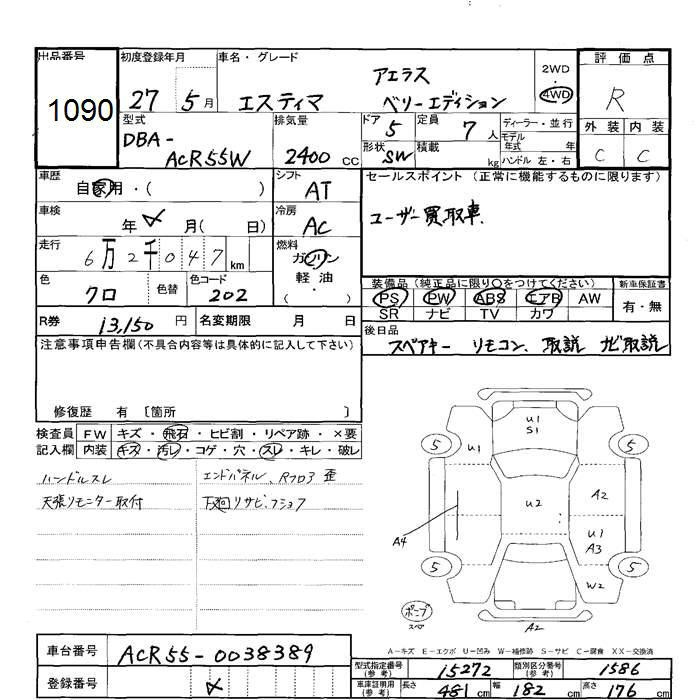 出品番号 初度登録年月 車名・グレード 2WD・4WD 評価点
1090 27 5月 エスティマ アエラス ベリーエディション R
型式 DBA-ACR55W 排気量 2400cc ドア 5 定員 7人 ディーラー・並行 外装 内装
形状 SW 積載 kg モデル年式 年 ハンドル 左・右 C C
車歴 自家用・( ) シフト AT セールスポイント (正常に機能するものに限ります)
車検 年 月( 日) 冷房 AC ユーザー買取車
走行 6万2千047km 燃料 ガソリン 軽油 ( ・ )
色 クロ 色替 色コード 202 装備品(純正品に限り○をつけてください) 新車保証書
PS PW ABS エアB AW 有・無
SR ナビ TV カワ
R券 13,150円 名変期限 月 日 後日品
スペアキー リモコン、取説 ナビ取説
注意事項申告欄(不具合内容等は具体的に記入して下さい)
修復歴 有 [箇所 ]
検査員 FW キズ・飛石・ヒビ割・リペア跡・×要
記入欄 内装 キズ・汚レ・コゲ・穴・スレ・キレ・破レ
ハンドルスレ エンドパネル、Rフロア 歪
天張リモニター取付 下廻リサビ、
U1
S1
5 U1 5
U2 A2
A4 U1
A3
5 5
W2
スペ
A2
A-キズ E-エクボ U-凹み W-補修跡 S-サビ C-腐食 XX-交換済
車台番号 ACR55-0038389
登録番号
型式指定番号(参考) 15272 類別区分番号(参考) 1586
車庫証明用(参考) 長さ 481cm 幅 182cm 高さ 176cm